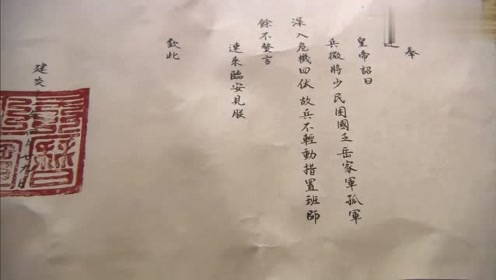 奉
皇帝詔曰
兵微將少民困國乏岳家軍孤軍
深入危機四伏故兵不輕動措置班師
餘不贅言
速來臨安見朕
欽此
建炎